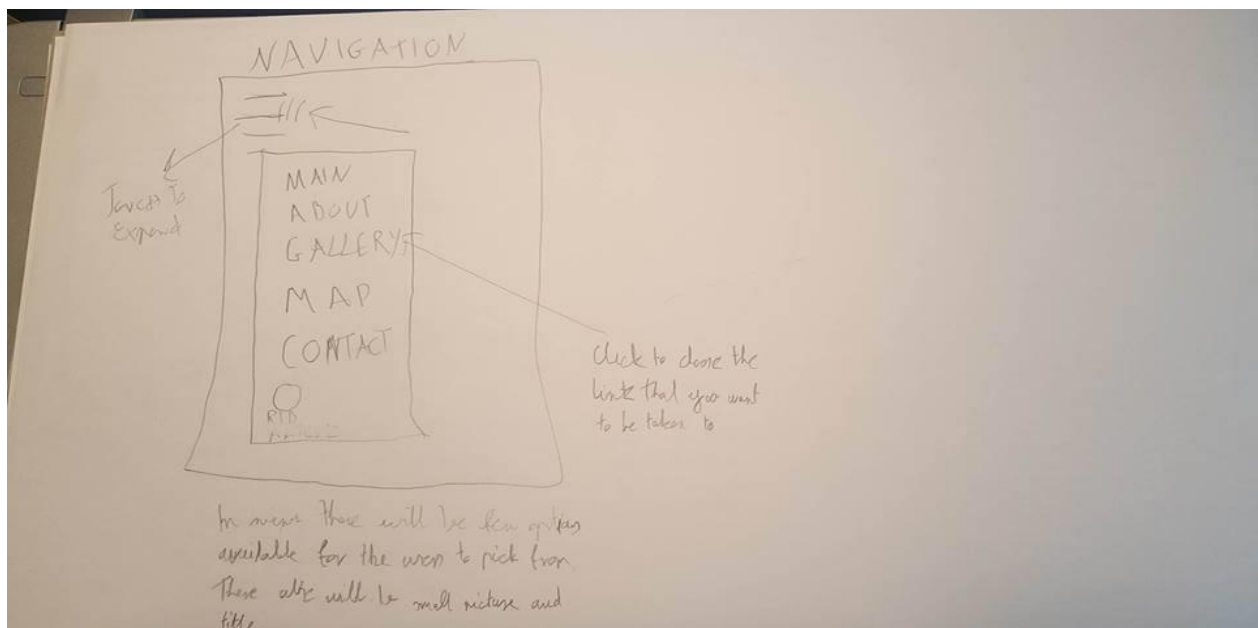 NAVIGATION
to
Expand
MAIN
ABOUT
GALLERY
MAP
CONTACT
Click to the
link that you want
to be taken to
In menu there will be few options
available for the user to pick from
There will be small picture and
title